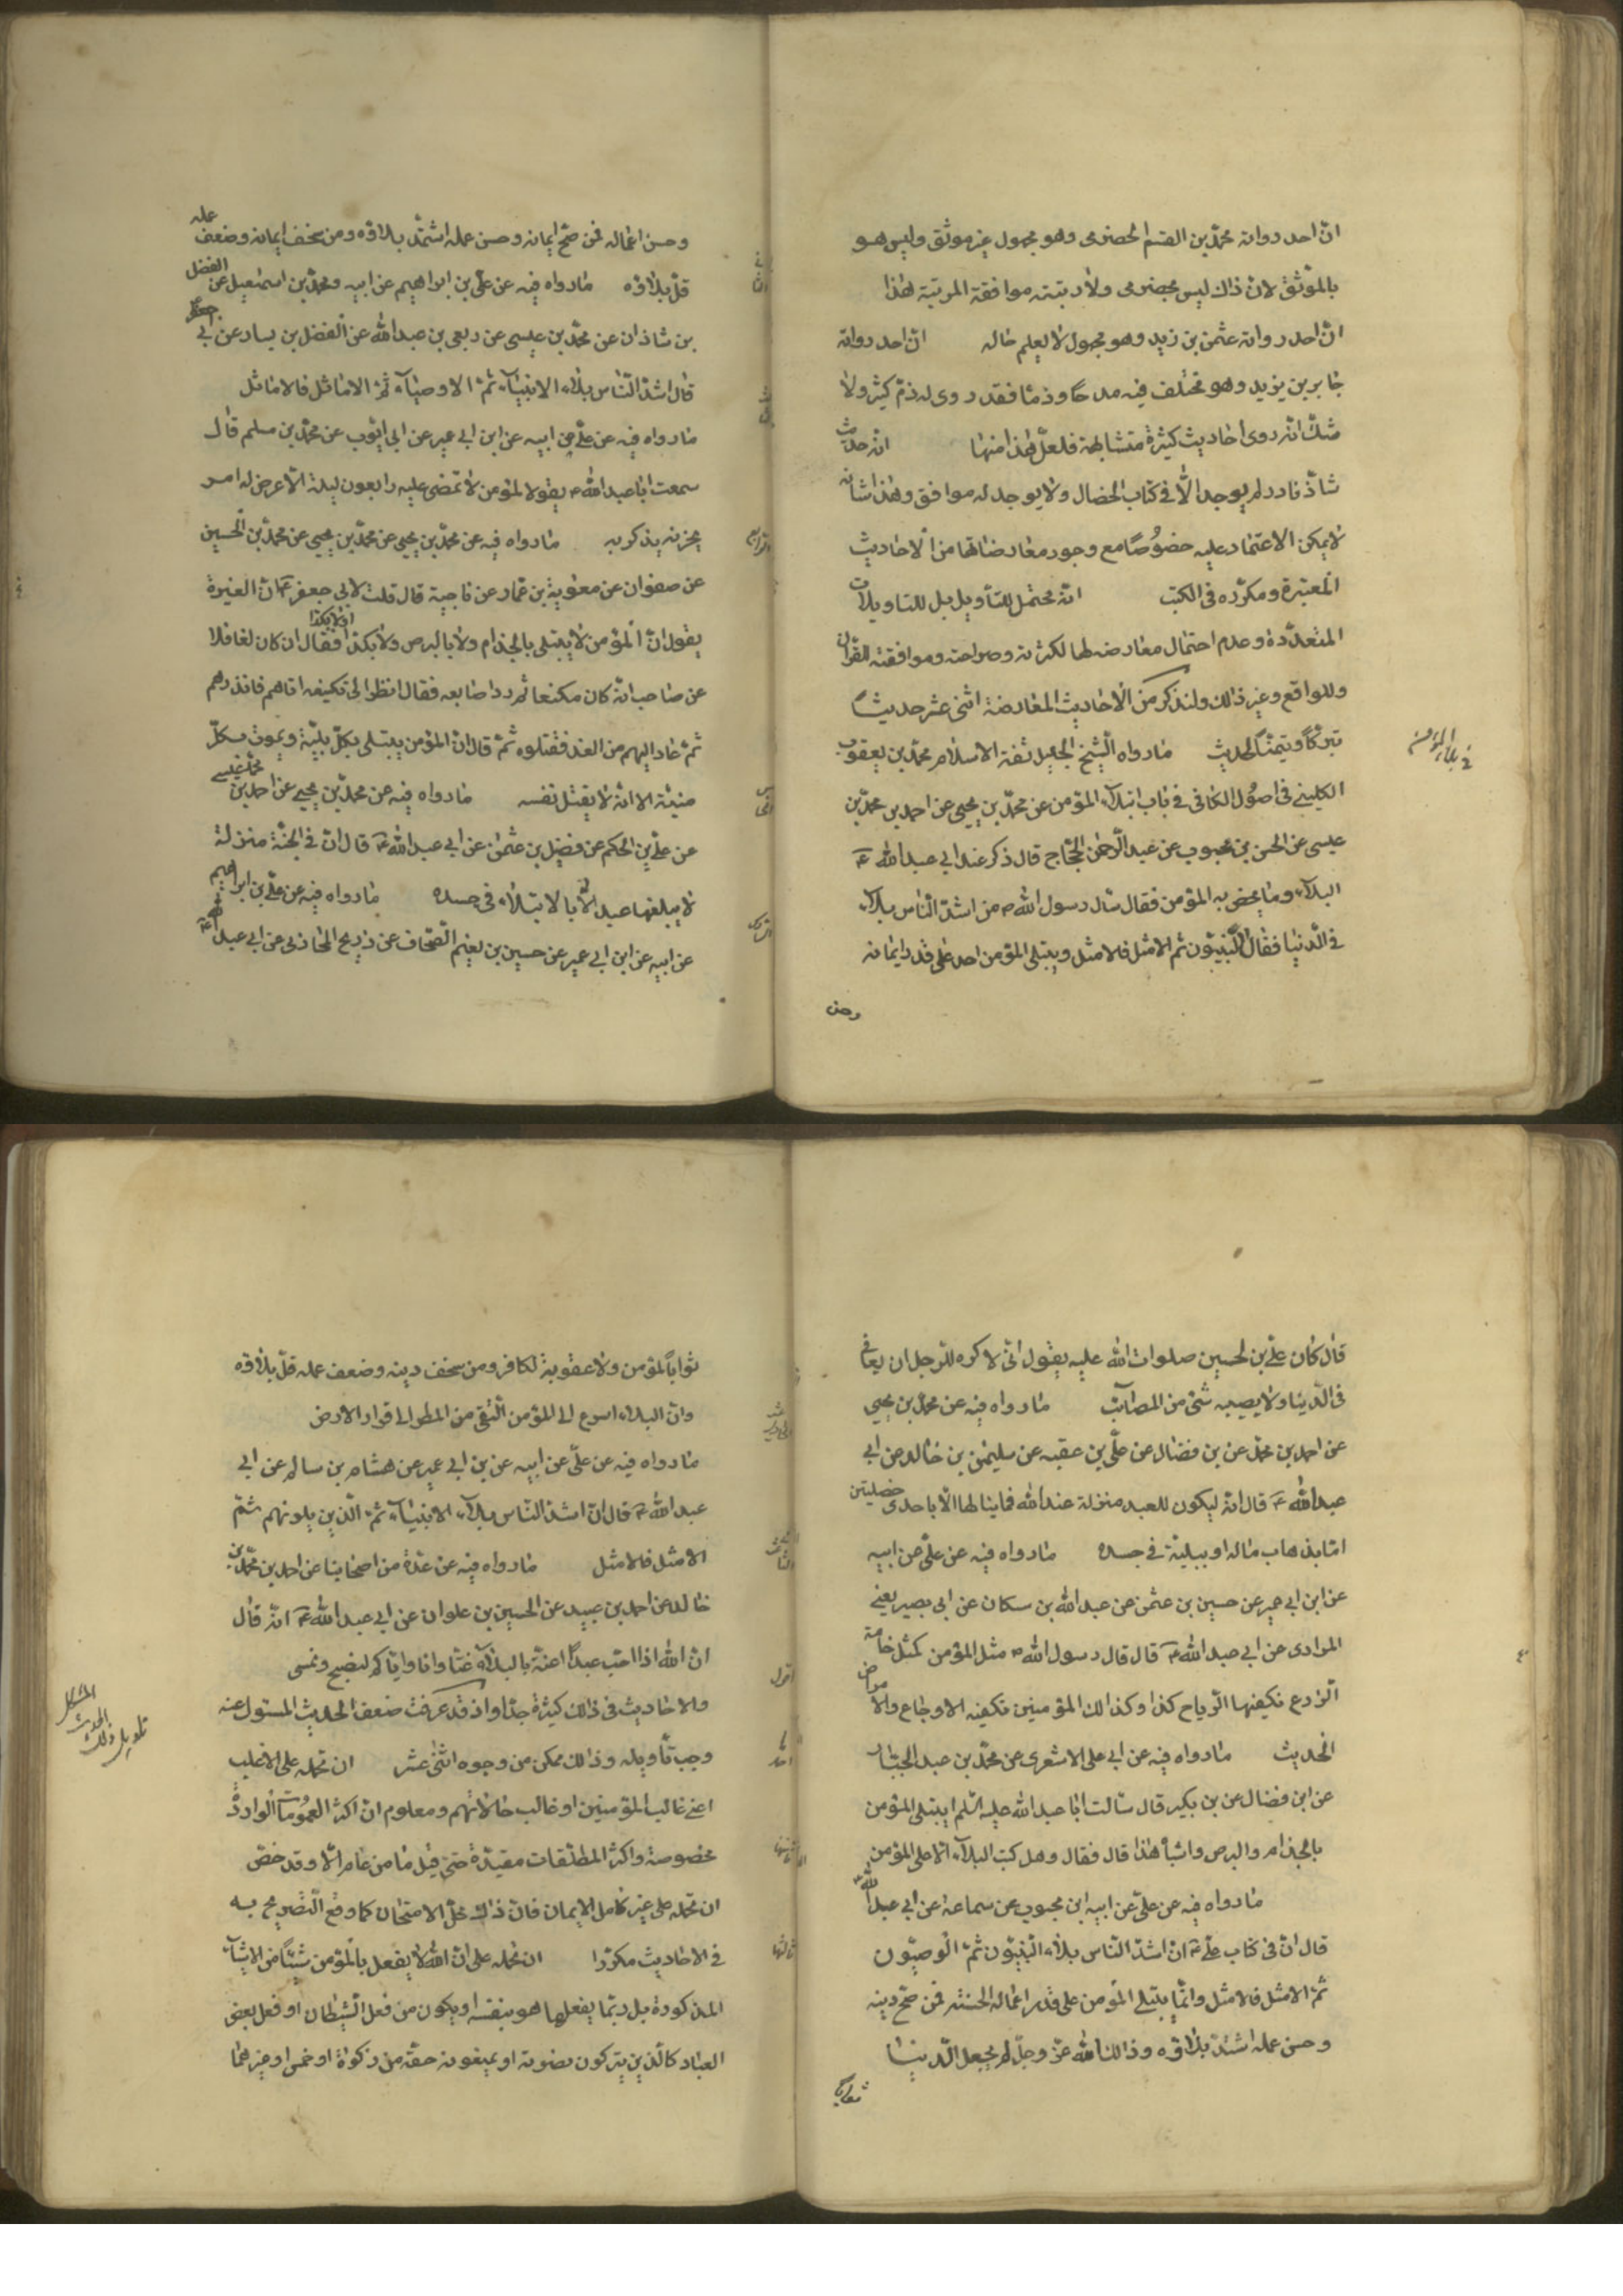 انّ احد رواته محمّد بن القسم الحضرمی وهو مجهول غیر موثّق ولیس هو
بالموثّق لانّ ذاك لیس بحضرمی ولا رتبته موافقة المرتبة هذا
انّ احد رواته عثمن بن زید وهو مجهول لا یعلم حاله انّ احد رواته
جابر بن یزید وهو مختلف فیه مدحًا وذمّا فقد روی له ذمّ کثیر ولا
شكّ انّه روی احادیث کثیرة متشابهة فلعلّ هذا منها انّه حدیث
شاذّ نادر لم یوجد الّا فی کتاب الخصال ولا یوجد له موافق وهذا شانه
لا یمکن الاعتماد علیه خصوُصًا مع وجود معارضاتها من الاحادیث
المعتبرة ومکرّره فی الکتب انّه محتمل للتأویل بل للتاویلات
المتعدّدة وعدم احتمال معارضه لها لکثرته وصراحته وموافقته للقرآن
وللواقع وغیر ذلك ولنذکر من الاحادیث المعارضة اثنی عشر حدیثًا
تبرّکًا وتیمّنًا لحدیث مارواه الشّیخ الجلیل ثقة الاسلام محمّد بن یعقوب
فی بلاء المؤمن
الکلینی فی اصوُل الکافی فی باب ابتلاء المؤمن عن محمّد بن یحیی عن احمد بن محمّد بن
عیسی عن الحسن بن محبوب عن عبد الرّحمن الحجّاج قال ذکر عند ابی عبد الله ع
البلاء وما یخص به المؤمن فقال سأل رسول الله ص من اشدّ النّاس بلاء
فی الدّنیا فقال النّبیّون ثم الامثل فالامثل ویبتلی المؤمن احد علی قدر ایمانه
وحسن
وحسن اعماله فمن صحّ ایمانه وحسن عمله اشتدّ بلاؤه ومن سخف ایمانه وضعف عمله
قلّ بلاؤه مارواه فیه عن علّی بن ابراهیم عن ابیه ومحمّد بن اسمٰعیل عن الفضل
بن شاذان عن محمّد بن عیسی عن ربعی بن عبد الله عن الفضل بن یسار عن ابی جعفر
قال اشدّ النّاس بلاء الانبیاء ثمّ الاوصیاء ثمّ الاماثل فالاماثل
مارواه فیه عن علّی عن ابیه عن ابن ابی عمیر عن ابی ایّوب عن محمّد بن مسلم قال
سمعت ابا عبد الله ع یقول المؤمن لا تمضی علیه اربعون لیلة الّا عرض له امر
یحزنه یذکر به مارواه فیه عن محمّد بن یحیی عن محمّد بن یحیی عن محمّد بن الحسین
عن صفوان عن معٰویة بن عمّار عن ناجیة قال قلت لابی جعفر ع انّ المغیرة
یقول انّ المؤمن لا یبتلی بالجذام ولا بالبرص ولا بکذا ولا بکذا فقال ان کان لغافلا
عن صاحب انّه کان مکنعا ثم ردا صابعه فقال انظر الی تکیفه اتاهم فانذرهم
ثمّ عاد الیهم من الغد فقتلوه ثمّ قال انّ المؤمن یبتلی بکلّ بلیّة ویموت بکلّ
میتة الا انّه لا یقتل نفسه مارواه فیه عن محمّد بن یحیی عن احمد بن محمّد عیسی
عن علّی بن الحکم عن فضیل بن عثمٰن عن ابی عبد الله ع قال انّ فی الجنّة منزلة
لا یبلغها عبد الّا بالابتلاء فی جسده مارواه فیه عن علّی بن ابراهیم
عن ابیه عن ابن ابی عمیر عن حسین بن نعیم الصّحّاف عن ذریح المحاربی عن ابی عبد الله ع
قال کان علّی بن لحسین صلوات الله علیه یقول انّی لاکره للرّجل ان یعافی
فی الدّنیا ولا یصیبه شئ من المصائب مارواه فیه عن محمّد بن یحیی
عن احمد بن محمّد عن بن فضال عن علّی بن عقبه عن سلیمٰن بن خالد عن ابی
عبد الله ع قال انّه لیکون للعبد منزلة عند الله فما ینالها الّا باحدی خصلتین
امّا بذهاب ماله او ببلیّة فی جسده مارواه فیه عن علّی عن ابیه
عن ابن ابی عمیر عن حسین بن عثمن عن عبد الله بن سکان عن ابی بصیر یعنی
المرادی عن ابی عبد الله ع قال قال رسول الله ص مثل المؤمن کمثل خامة
الزّرع تکیفها الرّیاح کذا وکذا وکذلك المؤمنین تکفیه الاوجاع والامراض
الحدیث مارواه فیه عن ابی علی الاشعری عن محمّد بن عبد الجبّار
عن ابن فضال عن بن بکیر قال سألت ابا عبد الله علیه السّلم ایبتلی المؤمن
بالجذام والبرص واشباه هذا قال فقال وهل کتب البلاء الّا علی المؤمن
مارواه فیه عن علّی عن ابیه ابن محبوب عن سماعة عن ابی عبد الله ع
قال انّ فی کتاب علی ع انّ اشدّ النّاس بلاء النّبیّون ثمّ الوصیّون
ثمّ الامثل فالامثل وانّما یبتلی المؤمن علی قدر اعماله الحسنة فمن صحّ دینه
وحسن عمله اشتدّ بلاؤه وذالك انّ الله عزّ وجلّ لم یجعل الدّنیا
ثوابًا
ثوابًا لمؤمن ولا عقوبة لکافر ومن سخف دینه وضعف عمله قلّ بلاؤه
وانّ البلاء اسرع الی المؤمن التّقی من المطر الی قرار الارض
مارواه فیه عن علّی عن ابیه عن بن ابی عمیر عن هشام بن سالم عن ابی
عبد الله ع قال انّ اشدّ النّاس بلاء الانبیاء ثمّ الّذین یلونهم ثمّ
الامثل فالامثل مارواه فیه عن عدّة من اصحابنا عن احمد بن محمّد بن
خالد عن احمد بن عبید عن الحسین بن علوان عن ابی عبد الله ع انّه قال
انّ الله اذا احبّ عبدًا اغتّه بالبلاء غتّا وانا وایّاکم لنصبح ونمسی
اقول
والاحادیث فی ذلك کثیرة جدّا واذ قد عرفت ضعف الحدیث المسئول عنه
وجب تأویله وذالك ممکن من وجوه اثنی عشر ان نحمله علی الاغلب
تاویل ذلك الحدیث المشکل
اعنی غالب المؤمنین او غالب حالاتهم ومعلوم انّ اکثر العمُومات الواردة
مخصوصة واکثر المطلقات مقیّدة حتّی قیل ما من عام الّا وقد خصّ
ثانیها
ان نحمله علی غیر کامل الایمان فانّ ذاك محلّ الامتحان کما وقع التّصریح به
فی الاحادیث مکرّرا ان نحمله علی انّ الله لا یفعل بالمؤمن شیئًا من الاشیاء
ثالثها
المذکورة بل ربّما یفعلها هو بنفسه او یکون من فعل الشّیطان او فعل بعض
العباد کالّذین یترکون نصوته او یمنعونه حقّه من زکوة او خمس او غیرهما